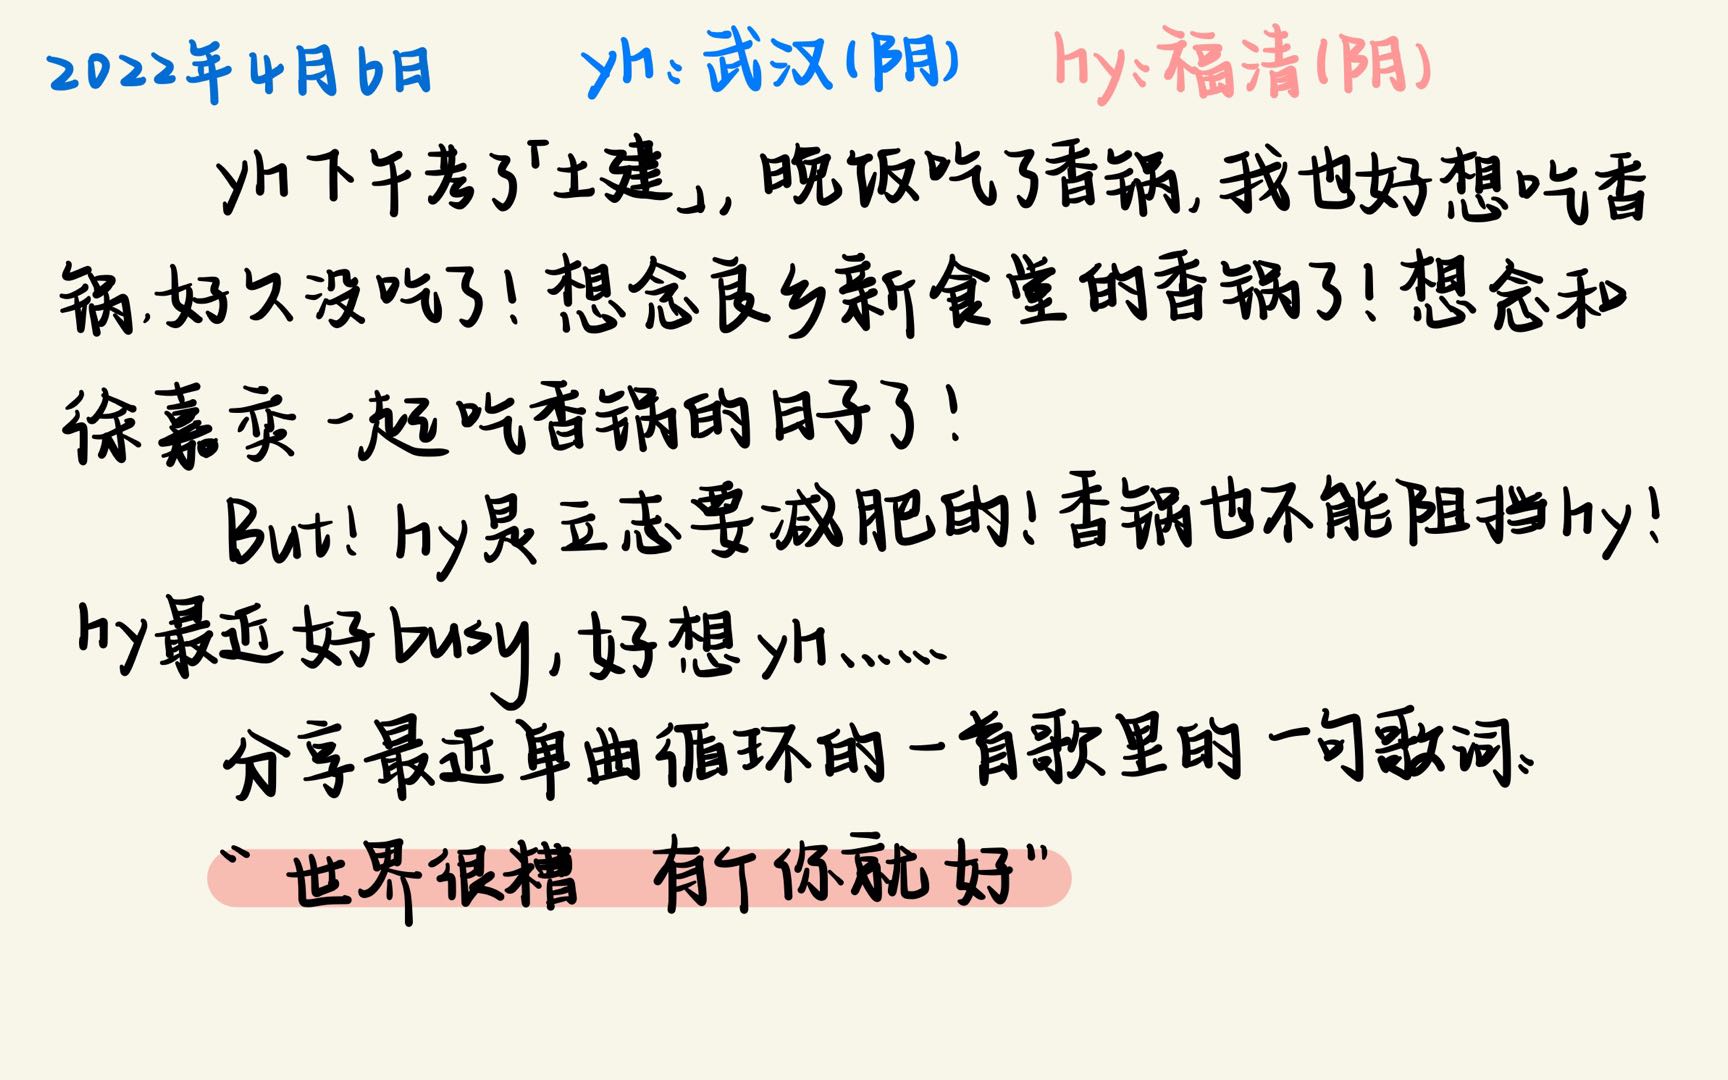 2022年4月6日 yh:武汉(阴) hy:福清(阴)
yh下午考了「土建」,晚饭吃了香锅,我也好想吃香
锅,好久没吃了!想念良乡新食堂的香锅了!想念和
徐嘉奕一起吃香锅的日子了!
But!hy是立志要减肥的!香锅也不能阻挡hy!
hy最近好busy,好想yh......
分享最近单曲循环的一首歌里的一句歌词:
“世界很糟 有个你就好”